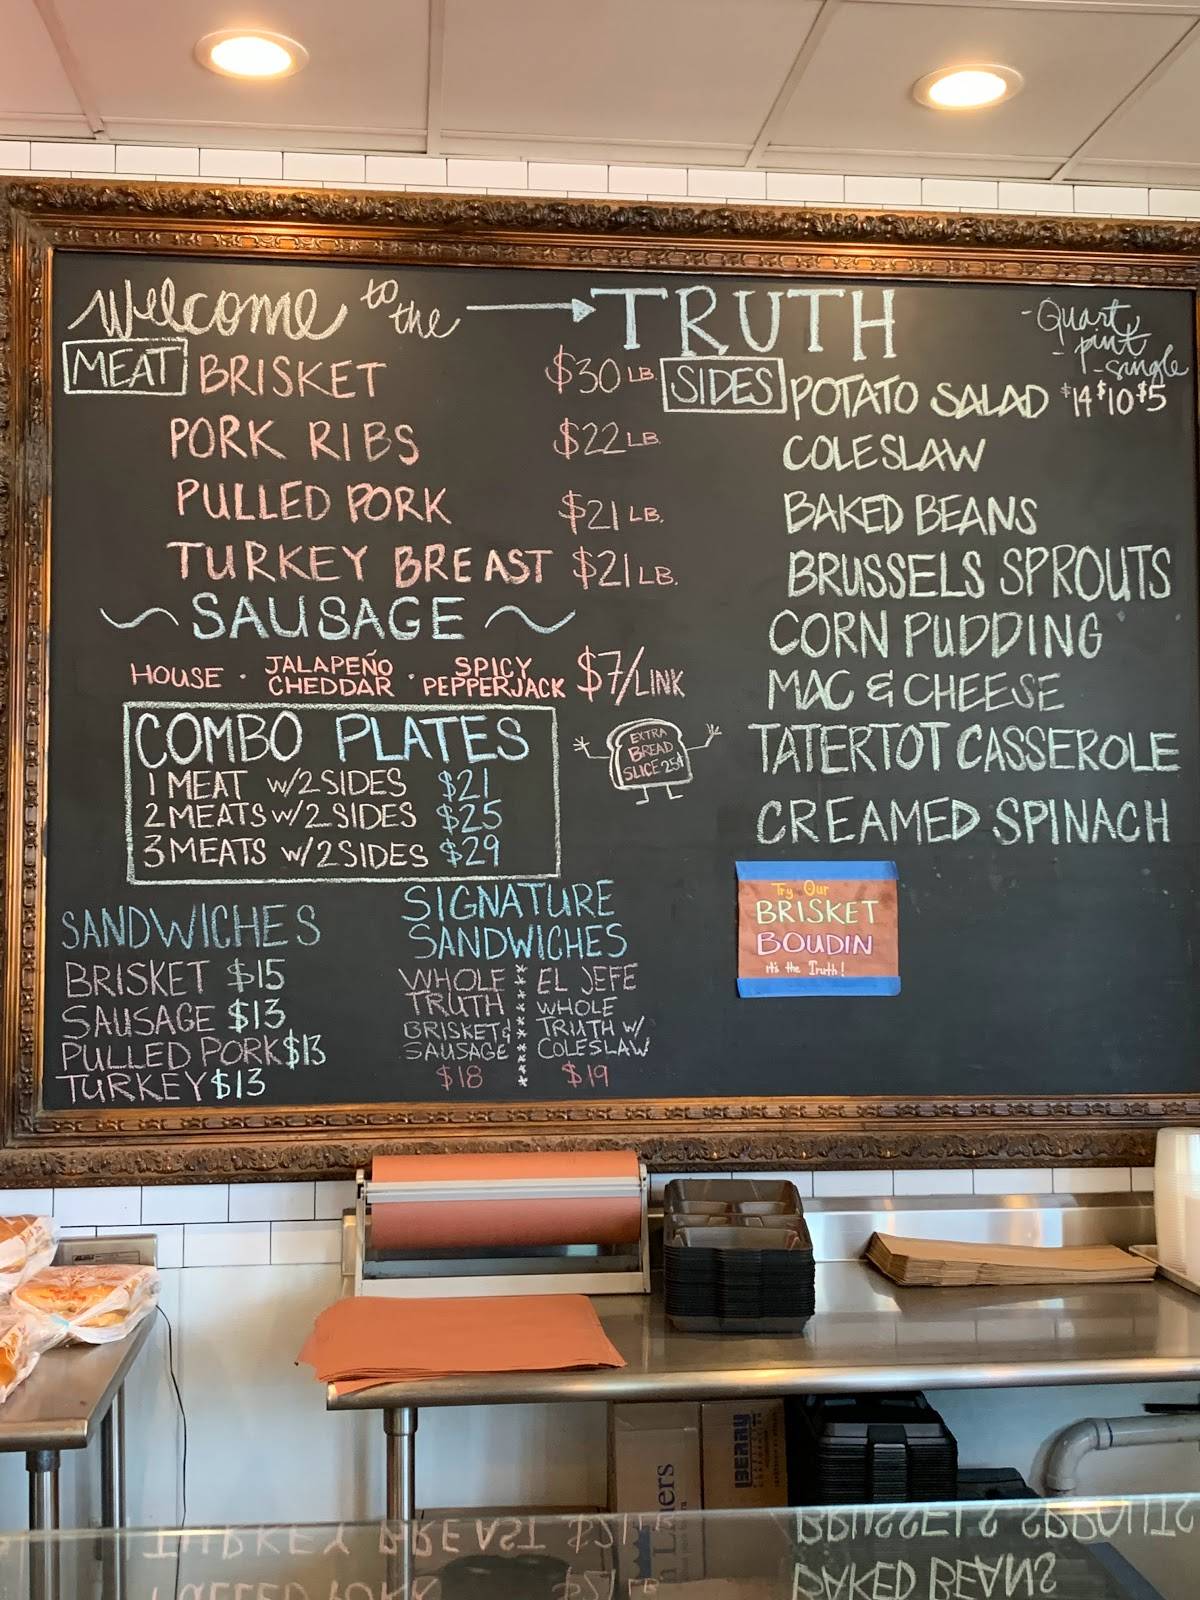 Welcome to the TRUTH
MEAT
BRISKET $30 LB.
PORK RIBS $22 LB.
PULLED PORK $21 LB.
TURKEY BREAST $21 LB.
~ SAUSAGE ~
HOUSE · JALAPEÑO CHEDDAR · SPICY PEPPERJACK $7/LINK
COMBO PLATES
1 MEAT W/2 SIDES $21
2 MEATS W/2 SIDES $25
3 MEATS W/2 SIDES $29
EXTRA
BREAD
SLICE 25¢
SANDWICHES
BRISKET $15
SAUSAGE $13
PULLED PORK $13
TURKEY $13
SIGNATURE
SANDWICHES
WHOLE
TRUTH
BRISKET &
SAUSAGE
$18
EL JEFE
WHOLE
TRUTH W/
COLESLAW
$19
- Quart,
- pint
- single
SIDES
POTATO SALAD $14 $10 $5
COLESLAW
BAKED BEANS
BRUSSELS SPROUTS
CORN PUDDING
MAC & CHEESE
TATERTOT CASSEROLE
CREAMED SPINACH
Try Our
BRISKET
BOUDIN
it's the Truth!
BERRY
TURKEY BREAST $21 LB.
PULLED PORK $21 LB.
BRUSSELS SPROUTS
BAKED BEANS